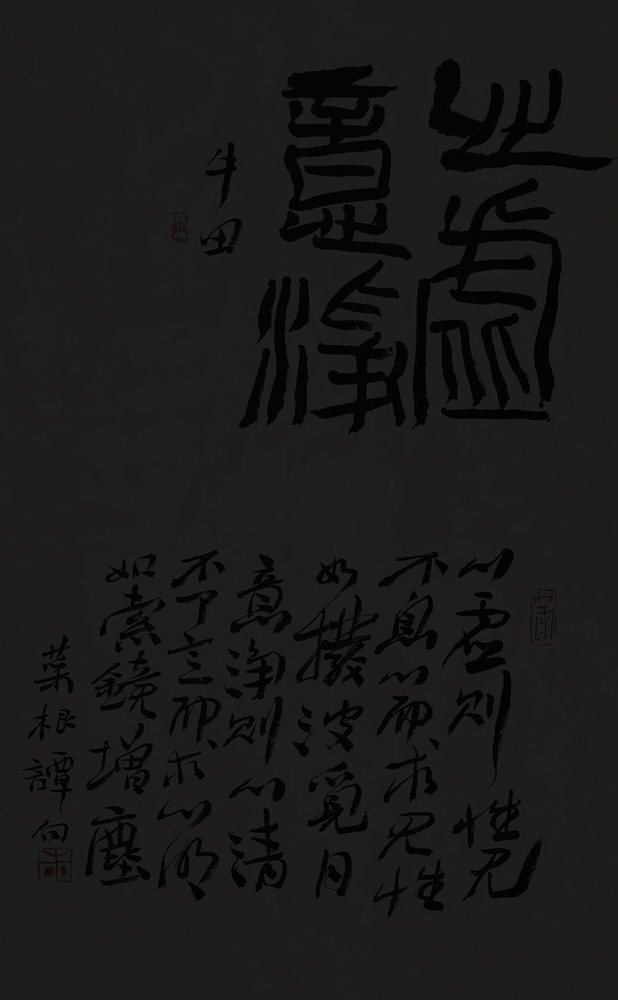 心虛
意淨
牛田
心虛則性見
不息心而求見性
如撥波覓月
意淨則心清
不了意而求心明
如索鏡增塵
菜根譚句